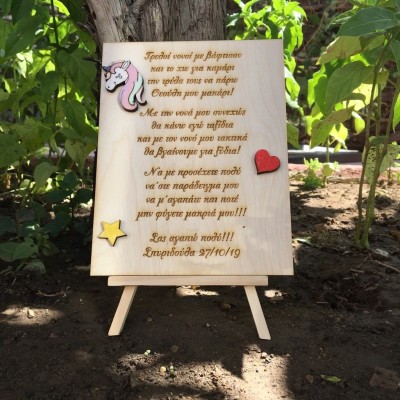 Τρελοί νονοί με βάφτισαν
και το χω για καμάρι
την τρέλα τους να πάρω
Θεούλη μου μακάρι!
Με την νονά μου συνεχώς
θα κάνω εγώ ταξίδια
και με τον νονό μου τακτικά
θα βγαίνουμε για ξύδια!
Να με προσέχετε πολύ
να'στε παράδειγμα μου
να μ'αγαπάτε και ποτέ
μην φύγετε μακριά μου!!!
Σας αγαπώ πολύ!!!
Σπυριδούλα 27/10/19